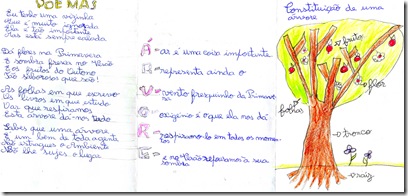 POEMAS
Eu tenho uma vizinha
Que é muito
Ela é tão importante
Mas está sempre calada
Dá flores na Primavera
E sombra fresca no Verão
E os frutos do Outono
São saborosos que são!
As folhas em que escrevo
Os livros em que estudo
O ar que respiramos
Esta árvore dá-nos tudo
Sabes que uma árvore
É um bem de toda a gente
Não estragues o Ambiente
Não lhe sujes o lugar
A ar é uma coisa importante
R representa ainda o
V vento fresquinho da Primavera
O oxigénio é o que ela nos dá
R respiramo-lo em todos os momentos
E e no Verão reparamos a sua
sombra
Constituição de uma
árvore
fruto
flor
folhas
o tronco
raiz